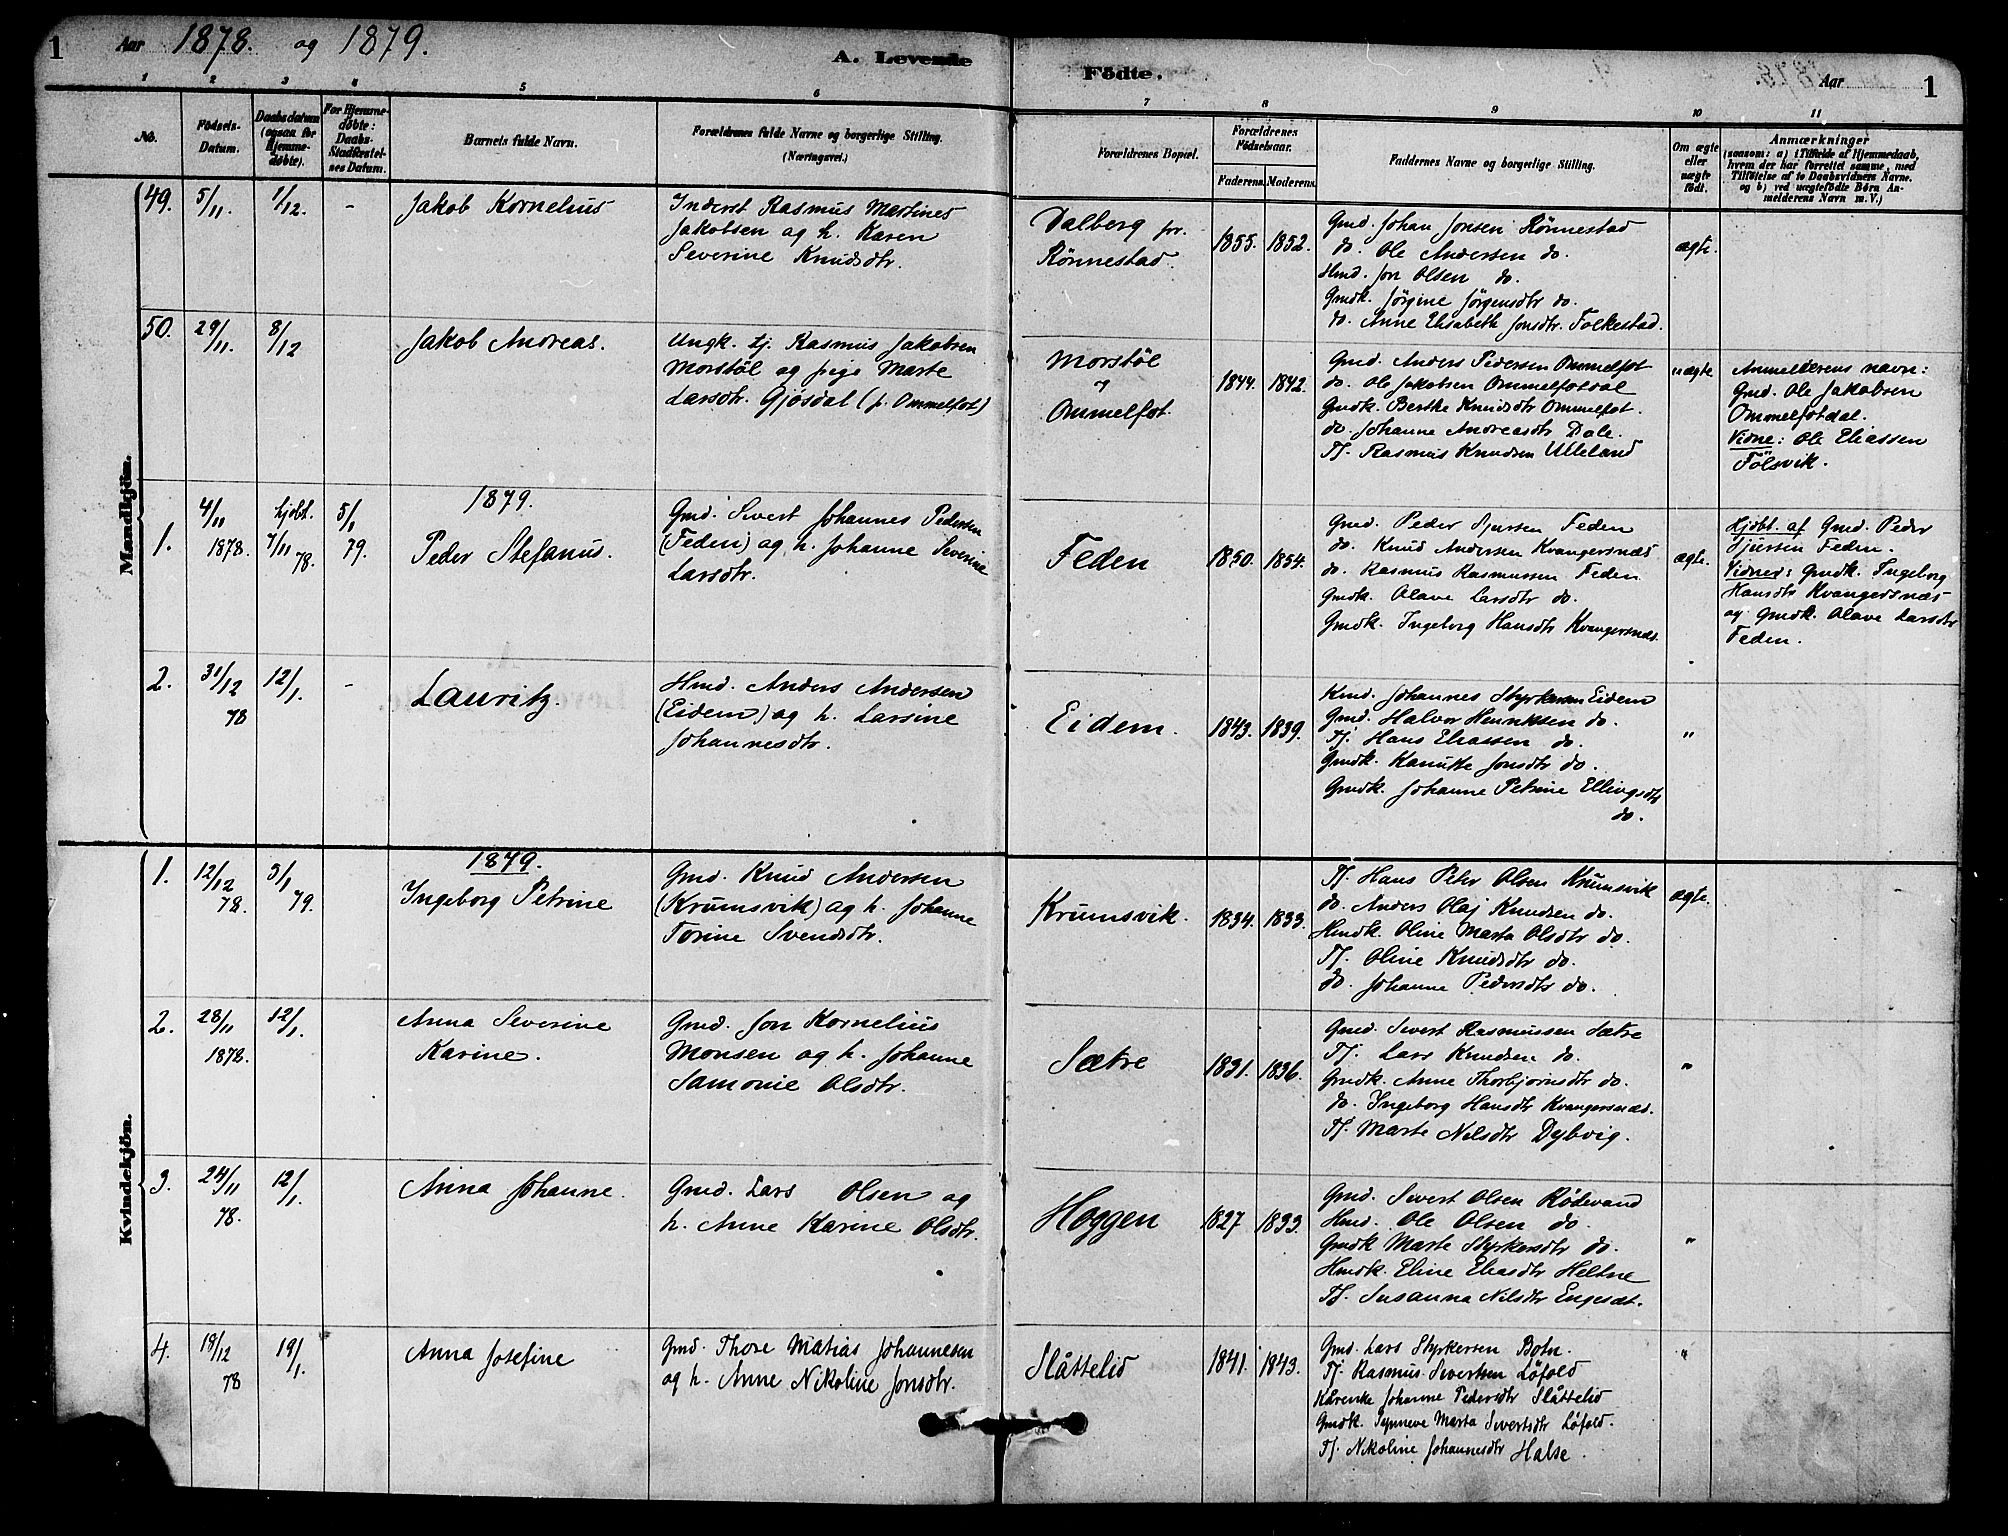 1 Aar 1878. og 1879. A. Levende Födte. Aar 1
1 2 3 4 5 6 7 8 9 10 11
No. Födsels-Datum. Daabsdatum (ogsaa for Hjemmedöbte). For Hjemmedöbte: Daabs-Stadfæstelses Datum. Barnets fulde Navn. Forældrenes fulde Navne og borgerlige Stilling. (Næringsvei.) Forældrenes Bopæl. Forældrenes Födselsaar. Faderens. Moderens. Faddernes Navne og borgerlige Stilling. Om ægte eller uægte födt. Anmærkninger (saasom: a) i Tilfælde af Hjemmedaab, hvem der har forrettet samme, med Tilföielse af to Daabsvidners Navne, og b) ved uægtefödte Börn Anmelderens Navn m.V.)
Mandkjön.
49. 5/11. 1/12. - Jakob Kornelius
Inderst Rasmus Martines
Jakobsen og h. Karen
Severine Knudsdtr.
Dalberg
Rönnestad
1855. 1852.
Gmd. Johan Jonsen Rönnestad
do. Ole Andersen do.
Hmd. Jon Olsen do.
Gmdk. Jörgine Jörgensdtr do.
do. Anne Elisabeth Jonsdtr. Folkestad.
ægte.
50. 29/11. 8/12 Jakob Andreas.
Ungk. tj. Rasmus Jakobsen
Morstöl og pige Marte
Larsdtr. Gjösdal (p. Ommelfot)
Morstöl
og
Ommelfot
1844. 1842.
Gmd. Anders Pedersen Ommelfot
do. Ole Jakobsen Ommelfotdal
Gmdk. Berthe Knudsdtr Ommelfot.
do. Johanne Andreasdtr Dale.
Tj. Rasmus Knudsen Ulleland
uægte
Anmelderens navn:
Gmd. Ole Jakobsen
Ommelfotdal.
Vidne: Ole Eliassen
Fölsvik.
1879.
1. 4/11 1878. hjdbt. 7/11 78. 5/1 79. Peder Stefanus.
Gmd. Sivert Johannes Pedersen
(Feden) og h. Johanne Severine
Larsdtr.
Feden
1850. 1854.
Gmd. Peder Sjursen Feden
do. Knud Andersen Kvangersnæs
do. Rasmus Rasmussen Feden
Gmdk. Olave Larsdtr do.
Gmdk. Ingeborg Hansdtr Kvangersnæs.
ægte.
Hjdbt. af Gmd. Peder
Sjursen Feden.
Vidner: Gmdk. Ingeborg
Hansdtr Kvangersnæs
og Gmdk. Olave Larsdtr
Feden.
2. 31/12 78 12/1. - Lauritz.
Hmd. Anders Andersen
(Eidem) og h. Larsine
Johannesdtr.
Eidem.
1843. 1839.
Kmd. Johannes Styrkersen Eidem
Gmd. Halvor Henriksen do.
Tj. Hans Eliassen do.
Gmdk. Kanutte Jonsdtr do.
Gmdk. Johanne Petrine Ellingsdtr
do.
"
Kvindekjön.
1879.
1. 12/12 78. 5/1 79. Ingeborg Petrine
Gmd. Knud Andersen
(Krumsvik) og h. Johanne
Torine Svendsdtr.
Krumsvik.
1834. 1833.
Tj. Hans Peter Olsen Krumsvik
do. Anders Olaj Knudsen do.
Hmdk. Oline Marta Olsdtr do.
Tj. Oline Knudsdtr do.
do. Johanne Pedersdtr do.
ægte.
2. 28/11 1878. 12/1. Anna Severine
Karine.
Gmd. Jon Kornelius
Monsen og h. Johanne
Samonie Olsdtr.
Sætre
1831. 1836.
Gmd. Sivert Rasmussen Sætre
Tj. Lars Knudsen do.
Gmdk. Anne Thorbjörnsdtr do.
do. Ingeborg Hansdtr Kvangersnæs.
Tj. Marte Nilsdtr Dybvig.
"
3. 24/11 78. 12/1. Anna Johanne.
Gmd. Lars Olsen og
h. Anne Karine Olsdtr.
Hoggen
1827 1833.
Gmd. Sivert Olsen Rödevand
Hmd. Ole Olsen do.
Gmdk Marte Styrkersdtr do.
Hmdk. Eline Eliasdtr Heltne
Tj. Susanna Nilsdtr Engesæt.
"
4. 18/12 78 19/1. Anna Josefine
Gmd. Thore Matias Johannesen
og h. Anne Nikoline Jonsdtr.
Slåttelid
1841. 1843.
Gmd. Lars Styrkersen Botn.
Tj. Rasmus Sivertsen Löfold
Kårenke Johanne Pedersdtr Slåttelid
Gmdk. Synneve Marta Sivertsdtr Löfold.
Tj. Nikoline Johannesdtr Halse.
"